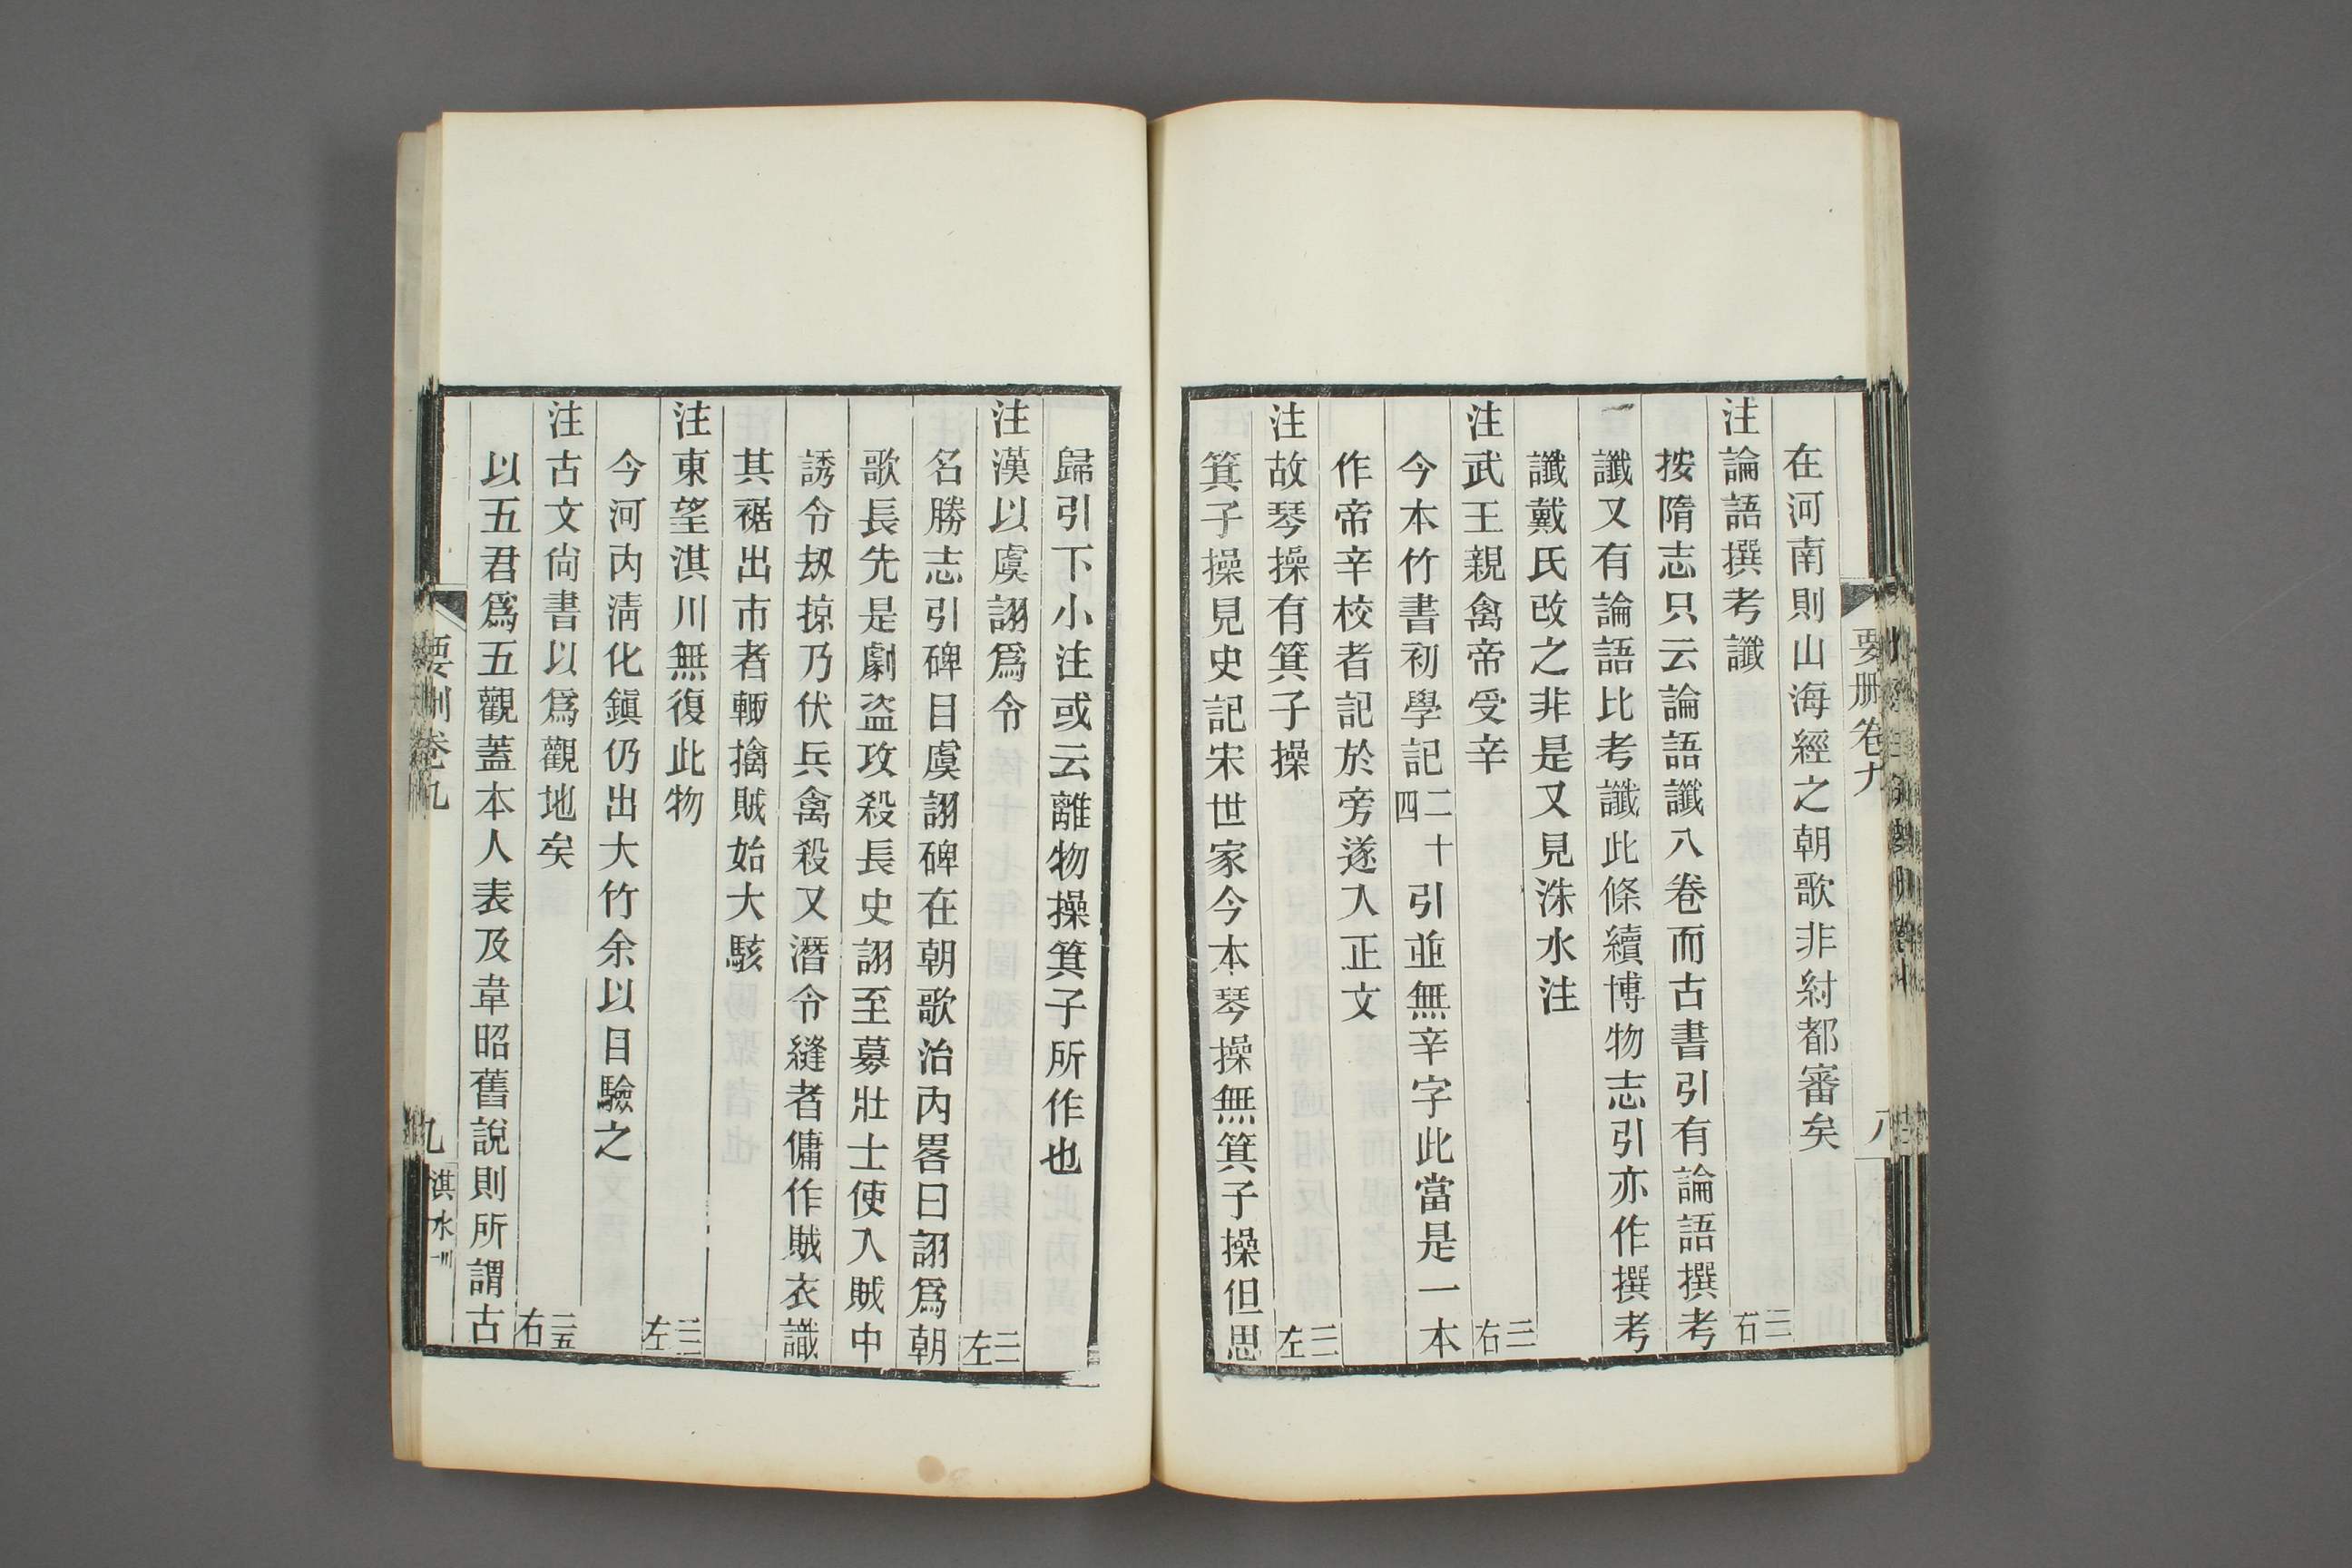 要刪卷九
八
在河南則山海經之朝歌非紂都審矣
注論語撰考讖 三右
按隋志只云論語讖八卷而古書引有論語撰考
讖又有論語比考讖此條續博物志引亦作撰考
讖戴氏改之非是又見洙水注
注武王親禽帝受辛 三右
今本竹書初學記二十四引並無辛字此當是一本
作帝辛校者記於旁遂入正文
注故琴操有箕子操 三左
箕子操見史記宋世家今本琴操無箕子操但思
歸引下小注或云離物操箕子所作也
注漢以虞詡爲令 三左
名勝志引碑目虞詡碑在朝歌治內畧曰詡爲朝
歌長先是劇盜攻殺長史詡至募壯士使入賊中
誘令刼掠乃伏兵禽殺又潛令縫者傭作賊衣識
其裾出市者輒擒賊始大駭
注東望淇川無復此物 三左
今河內淸化鎭仍出大竹余以目驗之
注古文尙書以爲觀地矣 五右
以五君爲五觀蓋本人表及韋昭舊說則所謂古
要刪卷九
九
淇水